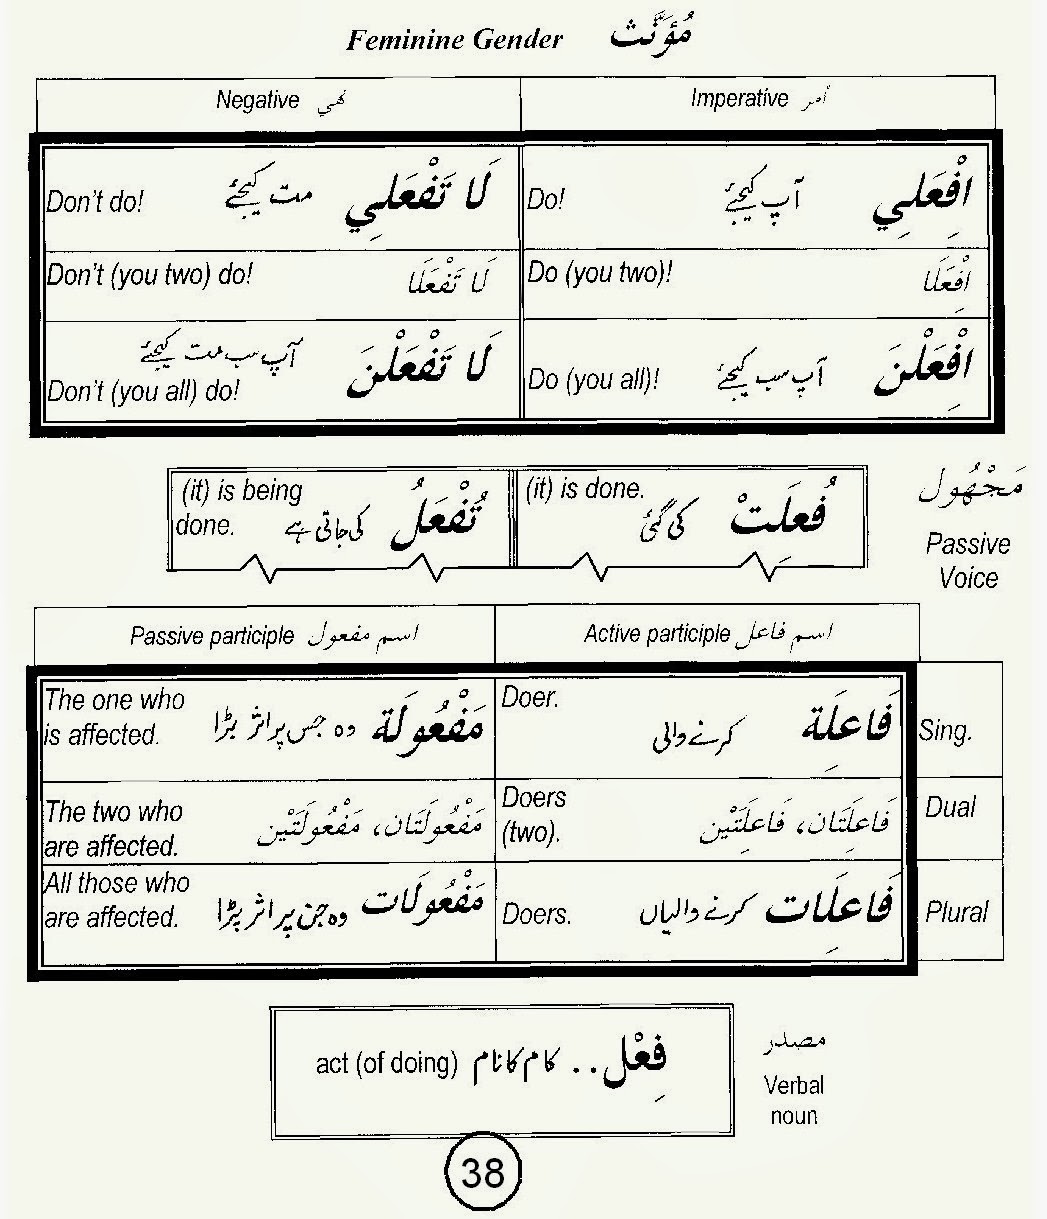 Feminine Gender مُؤَنَّث
Negative نهي Imperative أمر
Don't do! مت کیجئے لَا تَفْعَلِي Do! آپ کیجئے اِفْعَلِي
Don't (you two) do! لَا تَفْعَلَا Do (you two)! اِفْعَلَا
آپ سب مت کیجئے لَا تَفْعَلْنَ
Don't (you all) do! Do (you all)! آپ سب کیجئے اِفْعَلْنَ
(it) is being
done. کی جاتی ہے تُفْعَلُ (it) is done. کی گئی فُعِلَتْ مَجْهُول
Passive
Voice
Passive participle اسم مفعول Active participle اسم فاعل
The one who
is affected. وہ جس پر اثر پڑا مَفْعُولَة Doer. کرنے والی فَاعِلَة Sing.
The two who
are affected. مَفْعُولَتَان، مَفْعُولَتَيْن Doers
(two). فَاعِلَتَان، فَاعِلَتَيْن Dual
All those who
are affected. وہ جن پر اثر پڑا مَفْعُولَات Doers. کرنے والیاں فَاعِلَات Plural
act (of doing) کام کا نام .. فِعْل مصدر
Verbal
noun
38